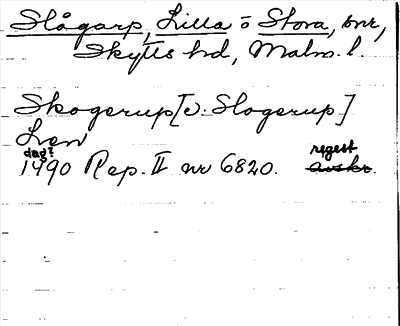 Slågarp, Lilla o Stora, snr,
Skytts hd, Malm. l.
Skogerup [ɔ: Slogerup]
Lren
dag?
1490 Rep. II nr 6820. regest
avskr.